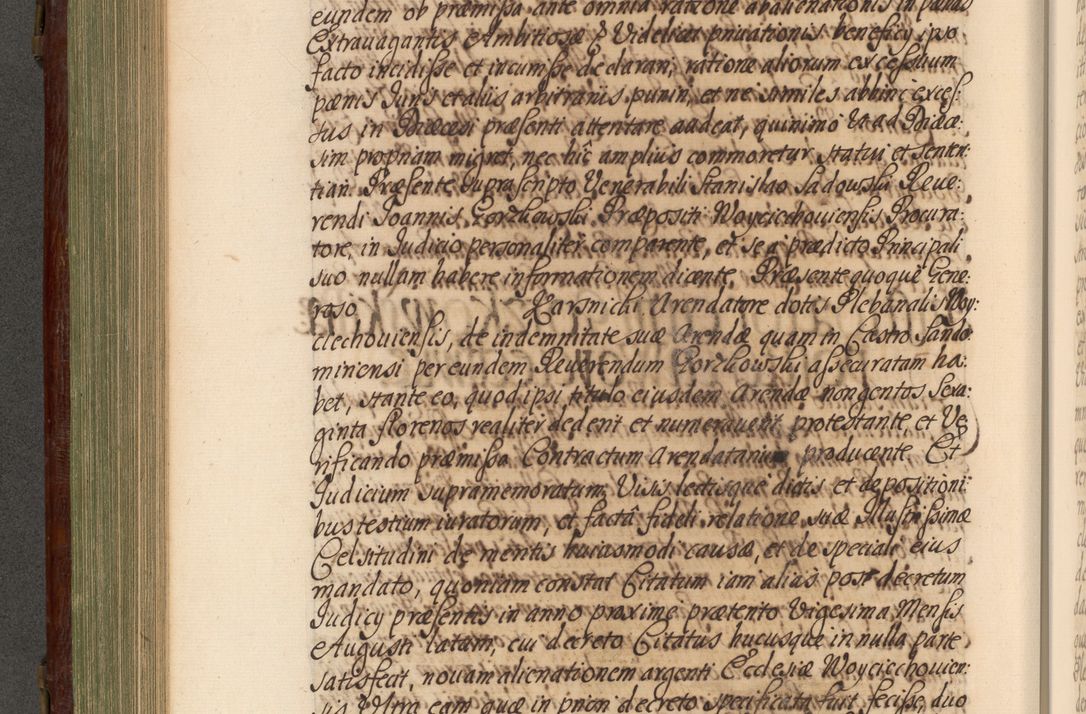 eundem ob præmissa ante omnia ratione abalienationis in pænas
Extravagantis Ambitiosæ & Videlicet privationis beneficij ipso
facto incidisse et incurrisse declarari, ratione aliorum excessuum
pœnis Juris et aliis arbitrariis puniri, et ne similes abhinc exces:
sus in Diæcesi præsenti attentare audeat, quinimo ad Diæce:
sim propriam migret, nec hic amplius commoretur statui et senten:
tiari. Præsente suprascripto Venerabili Stanislao Sadowski Reve:
rendi Joannis Gorzkowski Præpositi Woyciechoviensis Procura:
tore, in Judicio personaliter comparente, et se a prædicto Principali
suo nullam habere informationem dicente. Præsente quoque Gene:
roso Karsnicki Arendatore dotis Plebanalis Woy:
ciechoviensis, de indemnitate suæ Arendæ quam in Castro Sando:
miriensi per eundem Reverendum Gorzkowski assecuratam ha:
bet, stante eo, quod ipsi titulo eiusdem Arendæ nongentos sexa:
ginta florenos realiter dederit et numeraverit protestante, et Ve
rificando præmissa Contractum Arendatarium producente. Et
Judicium supramemoratum, Visis lectisque dictis et depositioni:
bus testium iuratorum, et factâ fideli relatione suæ Illustrissimæ
Celsitudini de mentis huiusmodi causæ, et de speciali eius
mandato, quoniam constat Citatum iam alias post decretum
Judicij præsentis in anno proxime prætento Vigesima Mensis
Augusti latam, cui decreto Citatus hucusque in nulla parte
satisfecit, novam alienationem argenti Ecclesiæ Woyciechovien:
sis Ultra eam quæ in priori decreto specificata fuit fecisse, duo